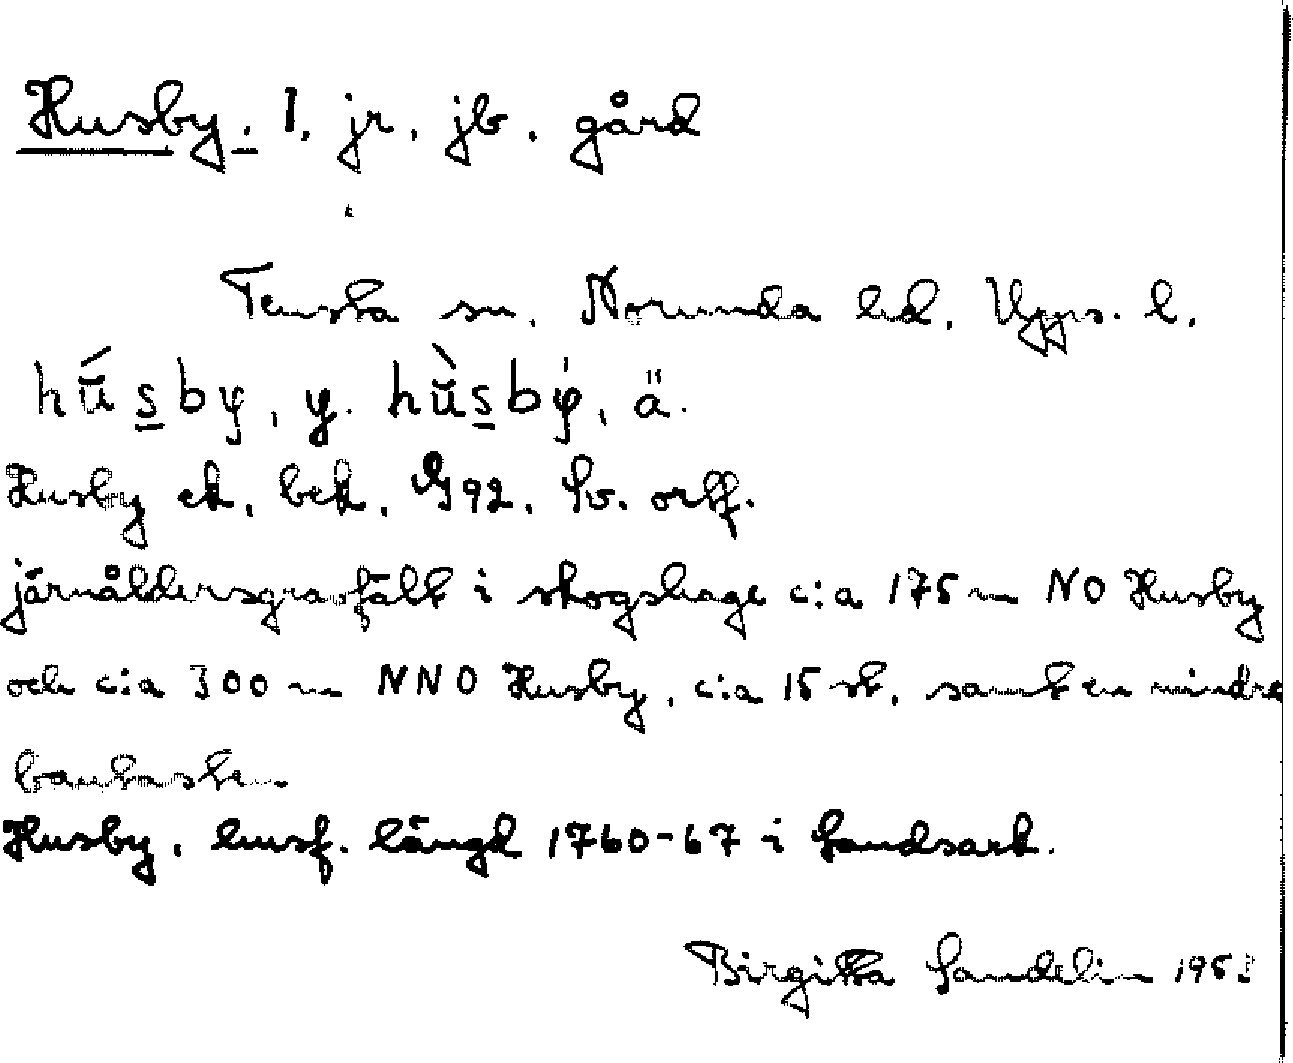 Husby. 1. jr, jb. gård
Tensta sn. Norunda hd. Upps. l.
hū́sby, y. hū̀sbý, ä.
Husby ek. bek. G92. Sv. ortf.
järnåldersgravfält i skogshage c:a 175 m NO Husby
och c:a 300 m NNO Husby, c:a 15 st, samt en mindre
bautasten
Husby, husf. längd 1760-67 i Landsark.
Birgitta Sandelin